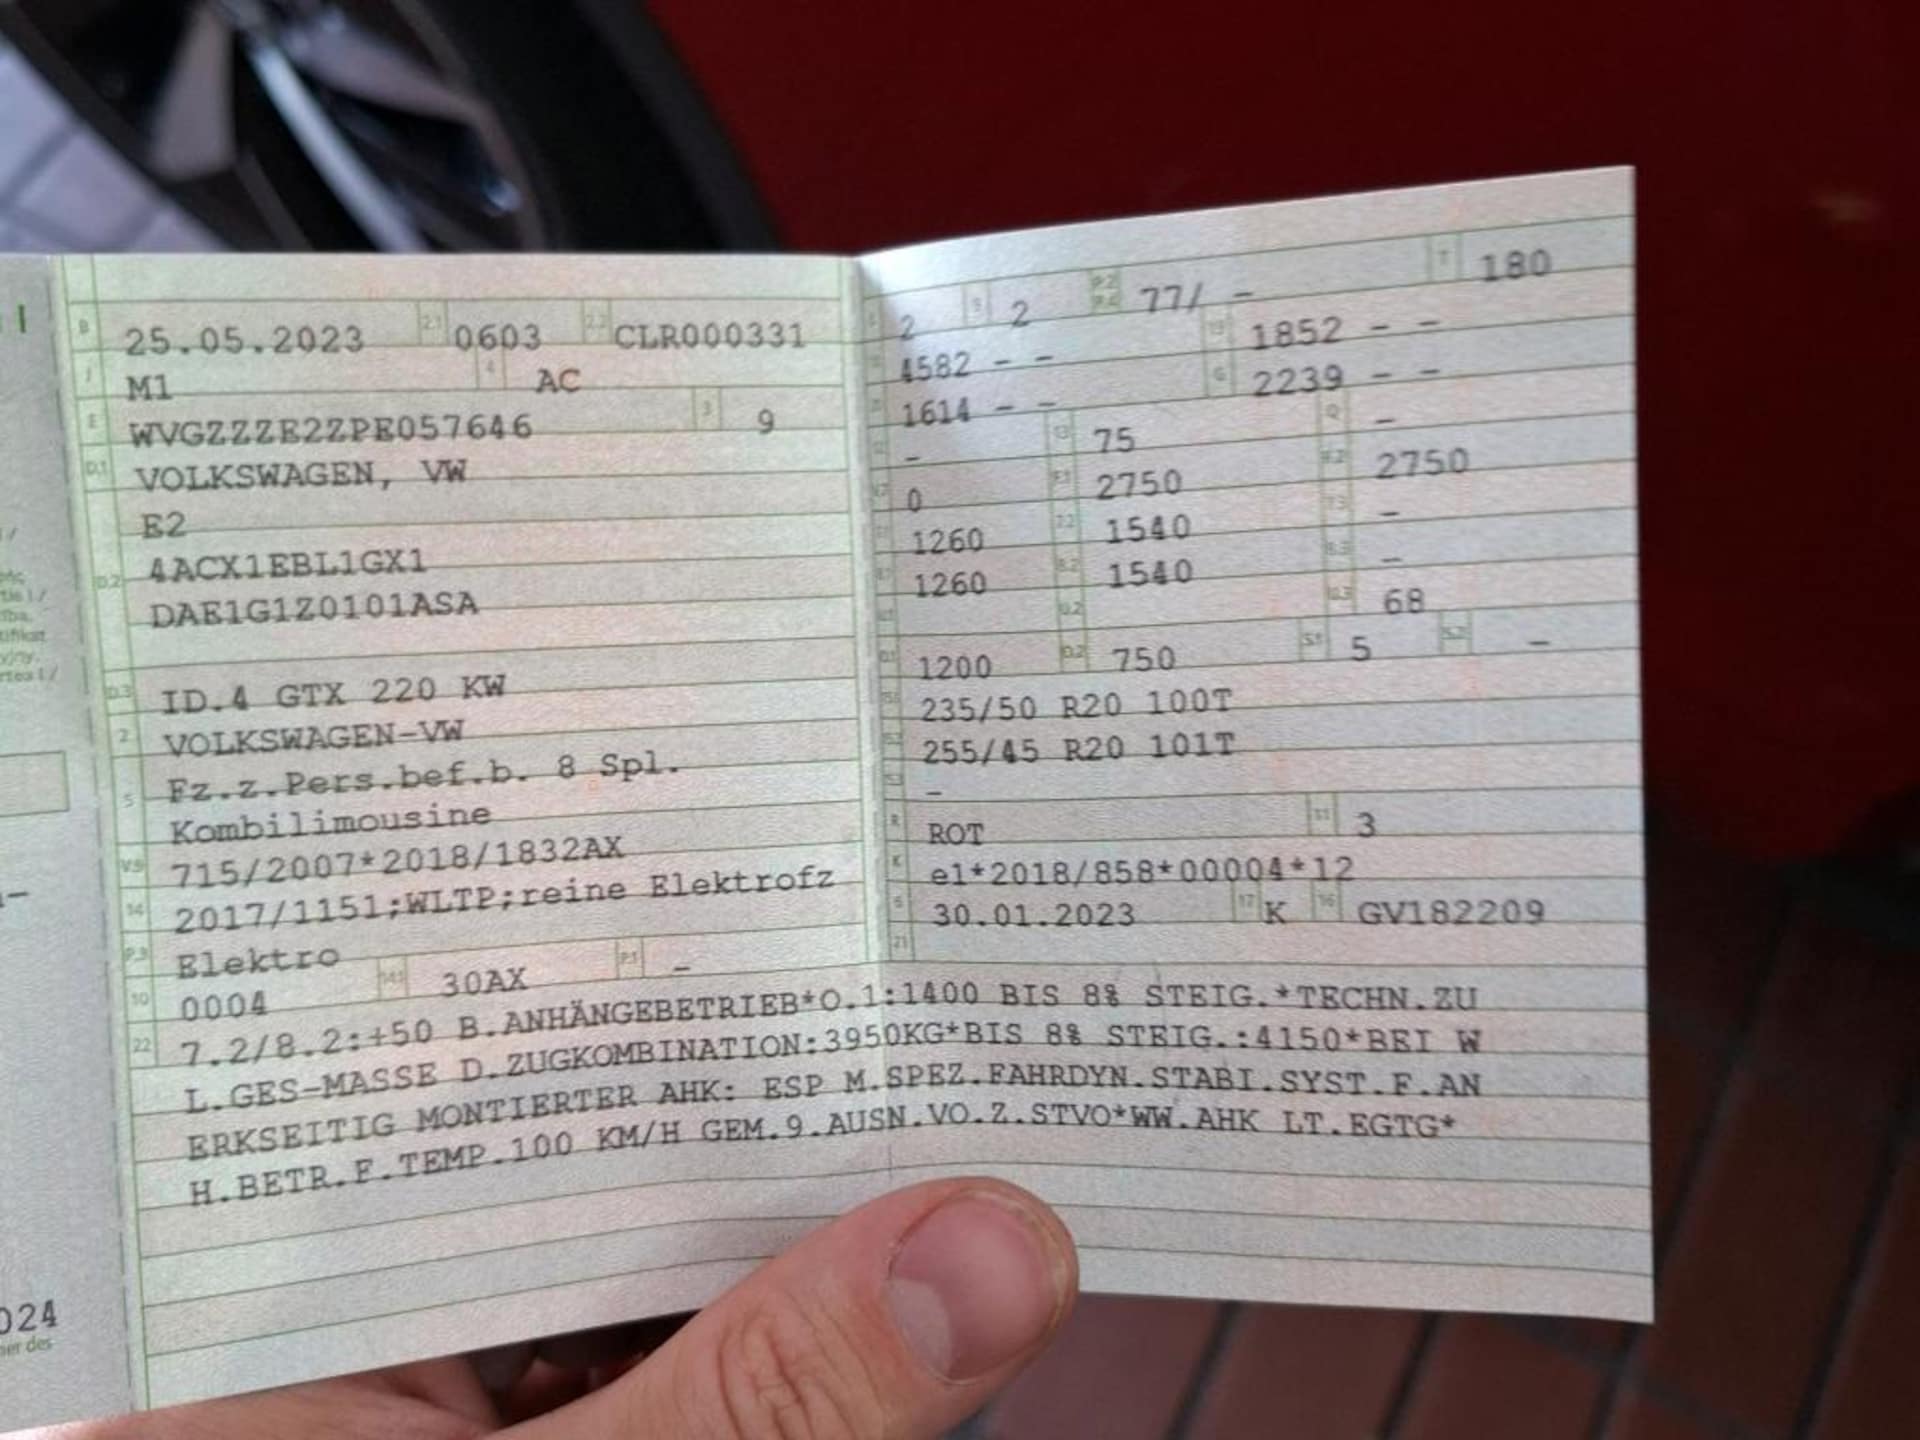 B 25.05.2023 2.1 0603 2.2 CLR000331
J M1 4 AC
E WVGZZZE2ZPE057646 3 9
D.1 VOLKSWAGEN, VW
E2
D.2 4ACX1EBL1GX1
DAE1G1Z0101ASA
D.3 ID.4 GTX 220 KW
2 VOLKSWAGEN-VW
Fz.z.Pers.bef.b. 8 Spl.
5 Kombilimousine
V.9 715/2007*2018/1832AX
14 2017/1151;WLTP;reine Elektrofz
P.3 Elektro
10 0004 14.1 30AX P.1 -
2 9 2 P.2 P.4 77/ - T 180
4582 - - 19 1852 - -
1614 - - G 2239 - -
- 13 75 Q -
0 F.1 2750 F.2 2750
1260 7.2 1540 7.3 -
1260 8.2 1540 8.3 -
U.2 U.3 68
O.1 1200 O.2 750 S.1 5 S.2 -
235/50 R20 100T
255/45 R20 101T
-
R ROT 11 3
K e1*2018/858*00004*12
6 30.01.2023 17 K 16 GV182209
21
22 7.2/8.2:+50 B.ANHÄNGEBETRIEB*O.1:1400 BIS 8% STEIG.*TECHN.ZU
L.GES-MASSE D.ZUGKOMBINATION:3950KG*BIS 8% STEIG.:4150*BEI W
ERKSEITIG MONTIERTER AHK: ESP M.SPEZ.FAHRDYN.STABI.SYST.F.AN
H.BETR.F.TEMP.100 KM/H GEM.9.AUSN.VO.Z.STVO*WW.AHK LT.EGTG*
024